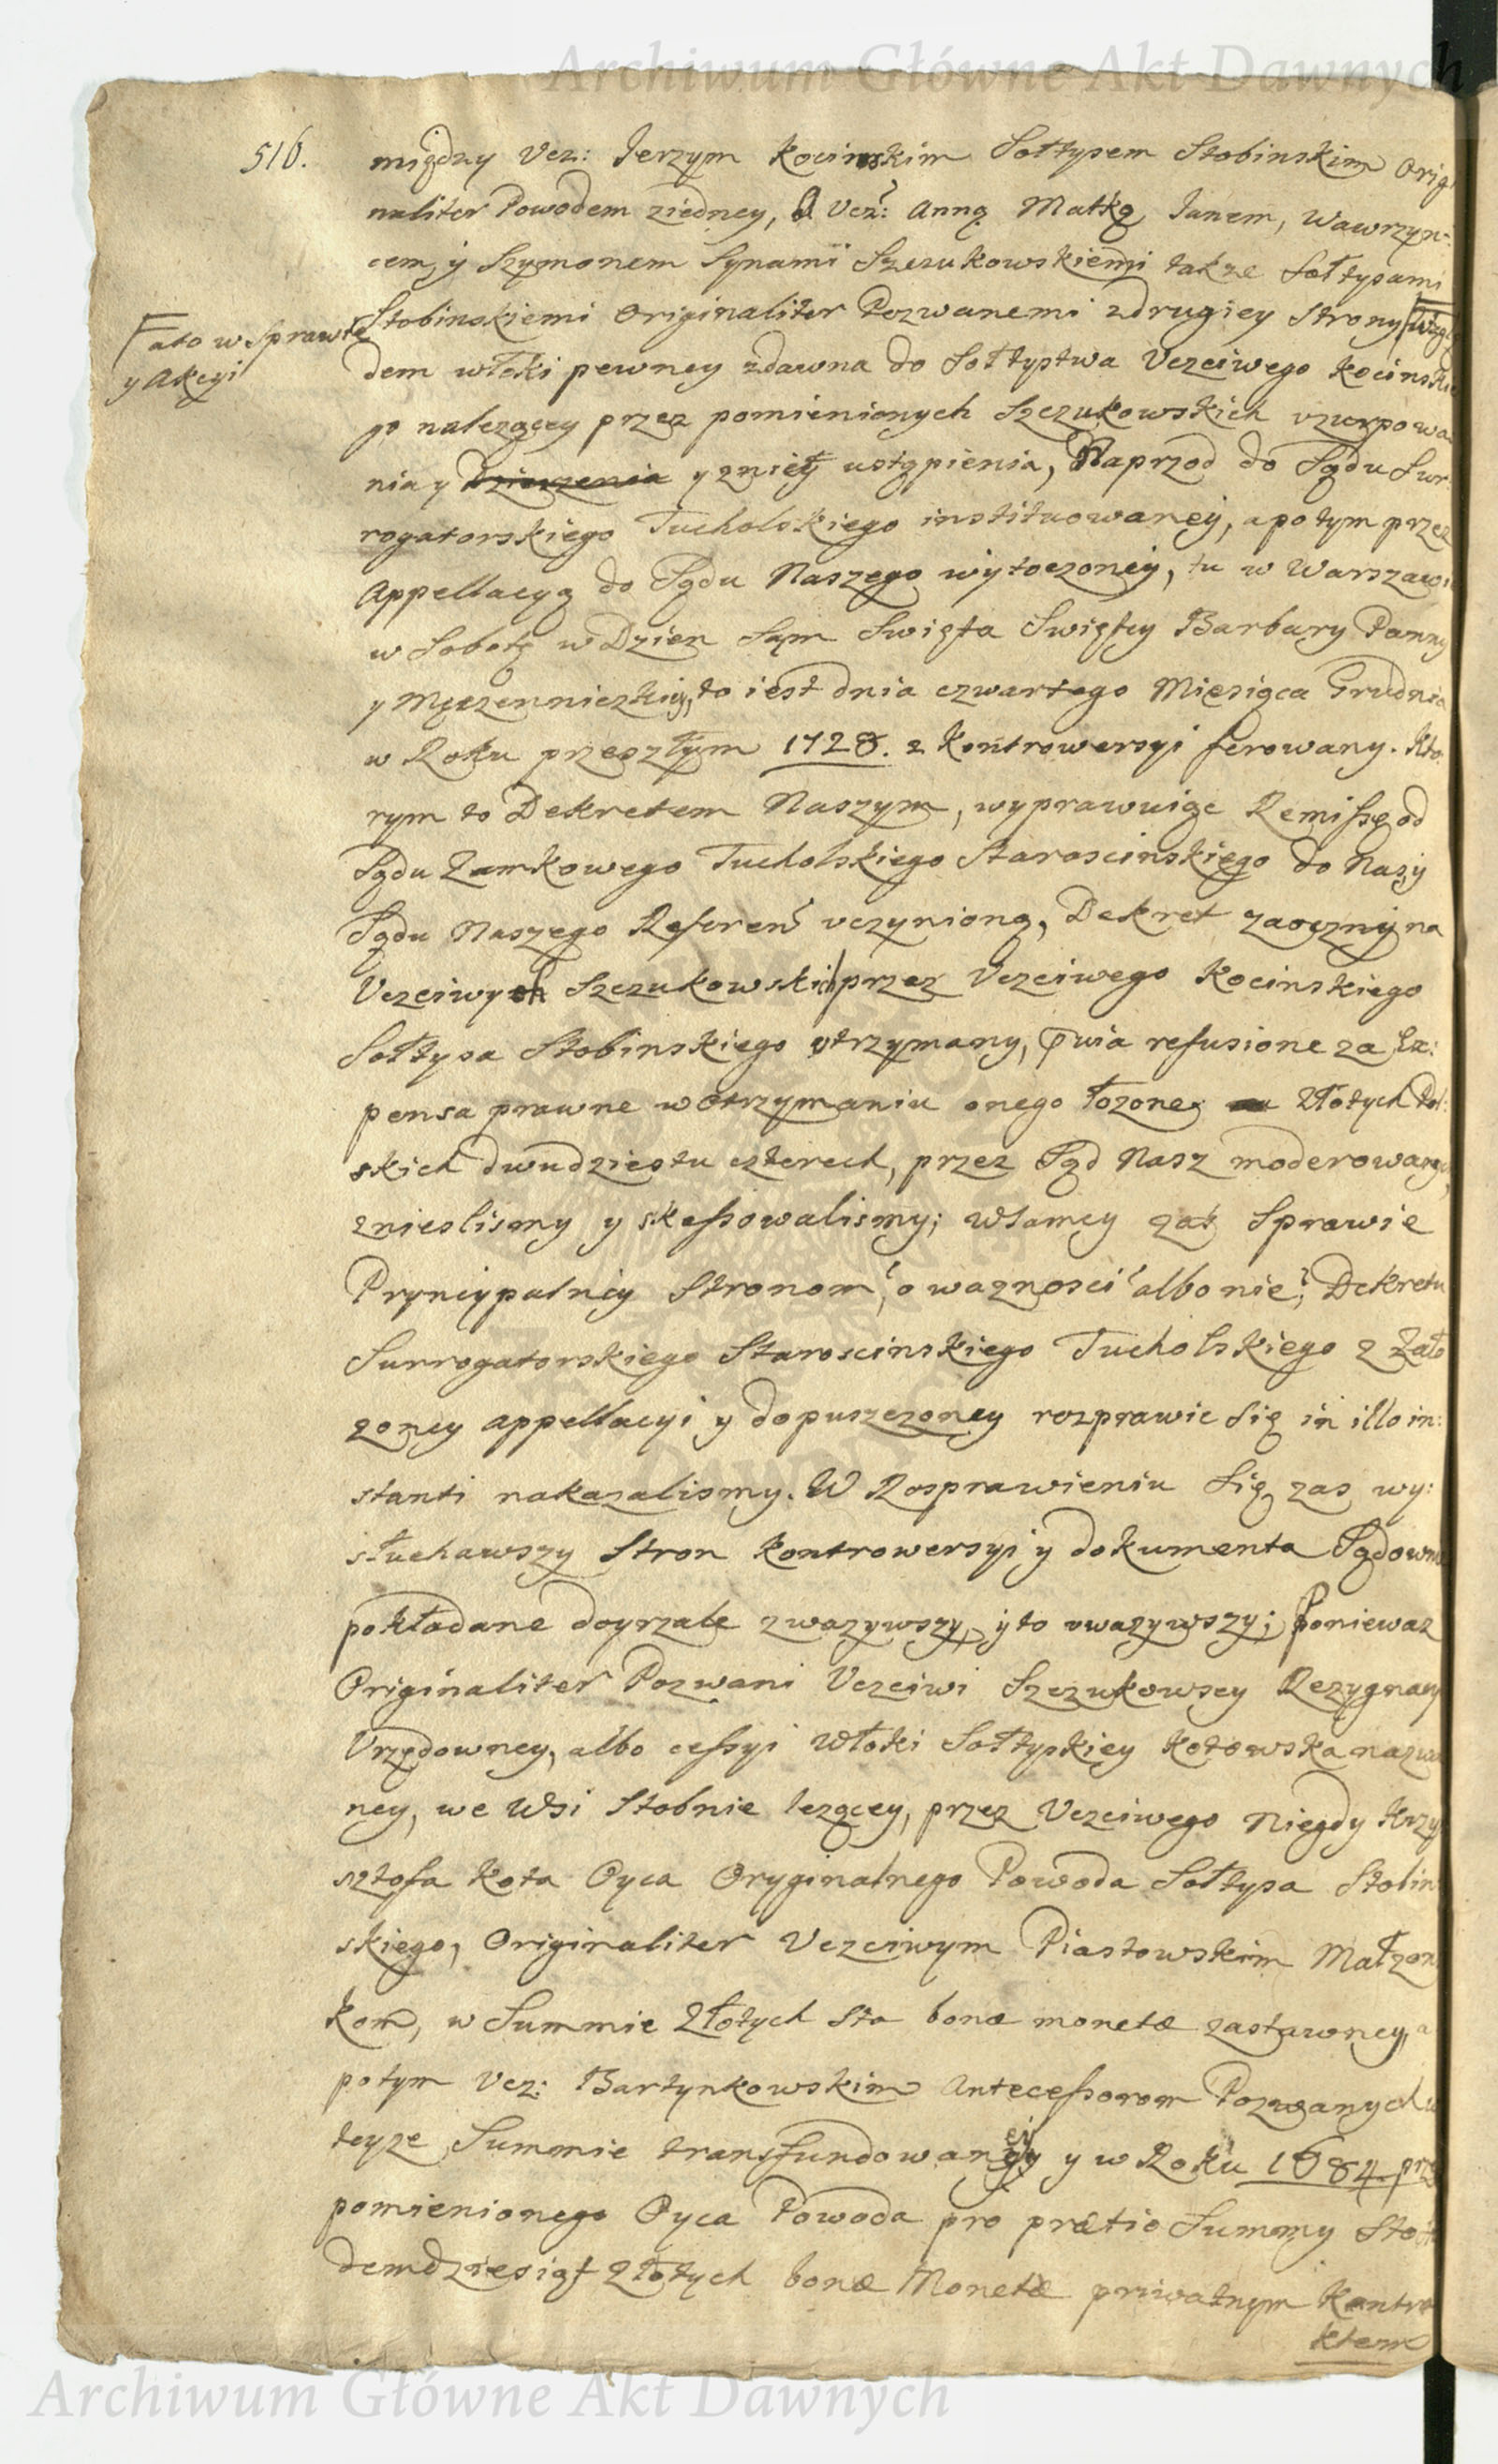 Archiwum Główne Akt Dawnych
516.
między Ucz: Jerzym Kocinskim Sołtysem Stobinskim Orig
naliter Powodem ziedney, A Ucz: Anną Matką Janem, Wawrzyn:
cem, y Szymonem Synami Szczukowskiemi także Sołtysami
Stobinskiemi Originaliter Pozwanemi zdrugiey strony Wzglę
ato w Sprawie
y Akcyi
dem włoki pewney zdawna do Sołtystwa Uczciwego Kocinskie
go nalezącey przez pomienionych Szczukowskich vzurpowa
nia y dzierzenia y zniey ustąpienia, Naprzod do Sądu Sur:
rogatorskiego Tucholskiego instituowaney, apotym przez
Appellacyą do Sądu Naszego wytoczoney, tu w Warszawi
w Sobotę w Dzien Sam Swięta Swiętey Barbary Panny
y Męczenniczkiy, to iest dnia czwartego Miesiąca Grudnia
w Roku przeszłym 1728. z Kontrowersyi ferowany. Kto:
rym to Dekretem Naszym, wyprawuiąc Remissę od
Sądu Zamkowego Tucholskiego Staroscinskiego do Naszy
Sądu Naszego Referen uczynioną, Dekret zaoczny na
Uczciwych Szczukowskich przez Uczciwego Kocinskiego
Sołtysa Stobinskiego otrzymany, refusione za Ex:
pensa prawne wotrzymaniu onego łozone Złotych Pol:
skich dwudziestu czterech, przez Sąd Nasz moderowaną,
zniesliśmy y skassowalismy; wsamey zaś Sprawie
Pryncypalney Stronom, o waznosci albo nie, Dekretu
Surrogatorskiego Staroscinskiego Tucholskiego z Zało
zoney appellacyi y dopuszczoney rozprawic Się in illo in:
stanti nakazalismy. W Rosprawieniu Się zas wy:
słuchawszy Stron Kontrowersyi y dokumenta Sądowni
pokładane doyrzale zwazywszy, y to uwazywszy; Poniewaz
Originaliter Pozwani Uczciwi Szczukowscy Rezygnacy
Urzędowney, albo cessyi Włoki Sołtyskiey Kotowska nazwa
ney, we Wsi Stobnie lezącey, przez Uczciwego Niegdy Krzy
sztofa Kota Oyca Oryginalnego Powoda Sołtysa Stobin
skiego, Originaliter Uczciwym Piastowskim Małzon
kom, w Summie Złotych Sta bonæ monetæ zastawney, a
potym Ucz: Bartynkowskim Antecessorom Pozwanych w
teyze Summie transfundowaney y w Roku 1684 prz
pomienionego Oyca Powoda pro prætio Summy Sto
demdziesiąt Złotych bonæ Monetæ priwatnym Kontra
ktem
Archiwum Główne Akt Dawnych